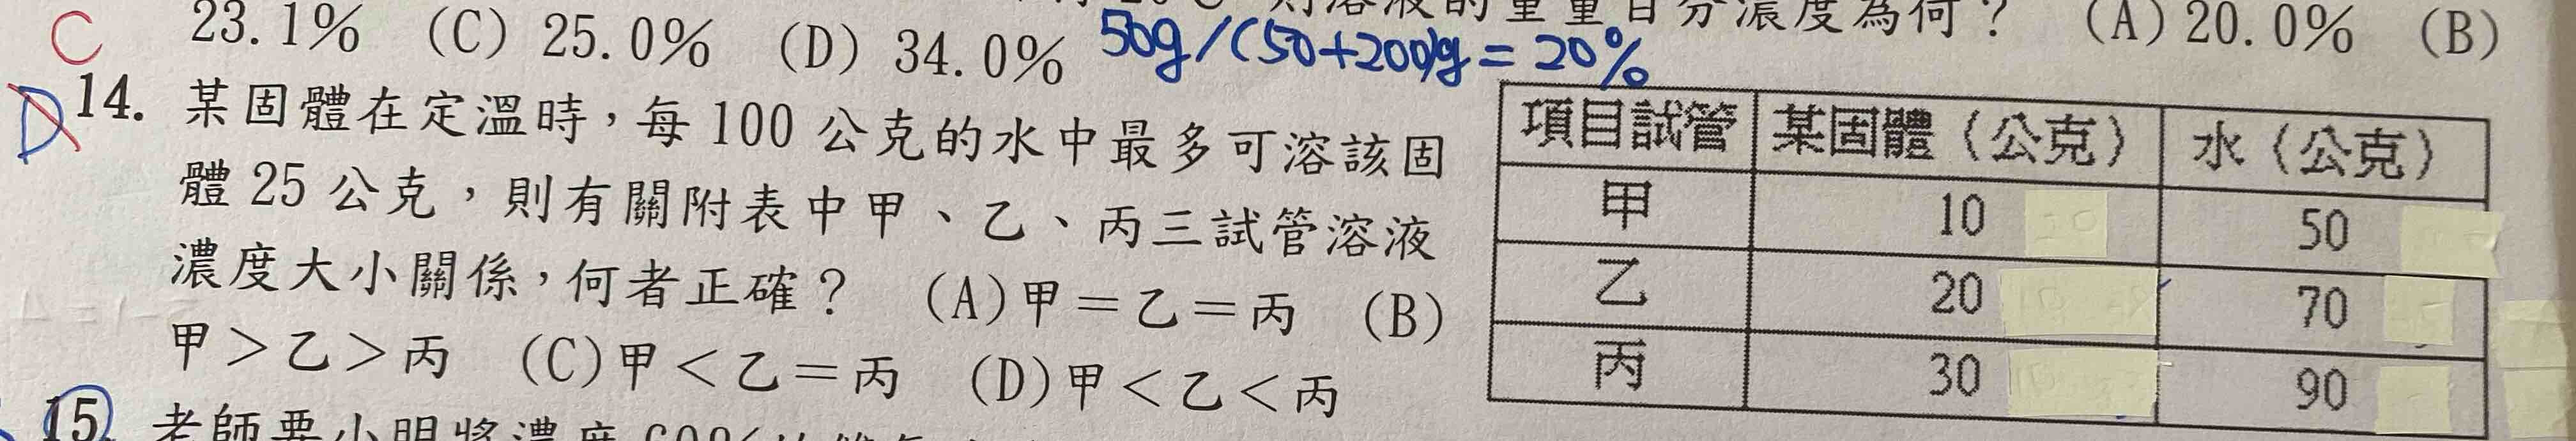 23.1% (C) 25.0% (D) 34.0% 50g/(50+200)g=20%
則溶液的重量百分濃度為何? (A)20.0% (B)
C
D 14. 某固體在定溫時,每 100 公克的水中最多可溶該固
體 25 公克,則有關附表中甲、乙、丙三試管溶液
濃度大小關係,何者正確? (A)甲=乙=丙 (B)
甲>乙>丙 (C)甲<乙=丙 (D)甲<乙<丙
項目試管 某固體(公克) 水(公克)
甲 10 50
乙 20 70
丙 30 90
15. 老師要小明將濃度 60%